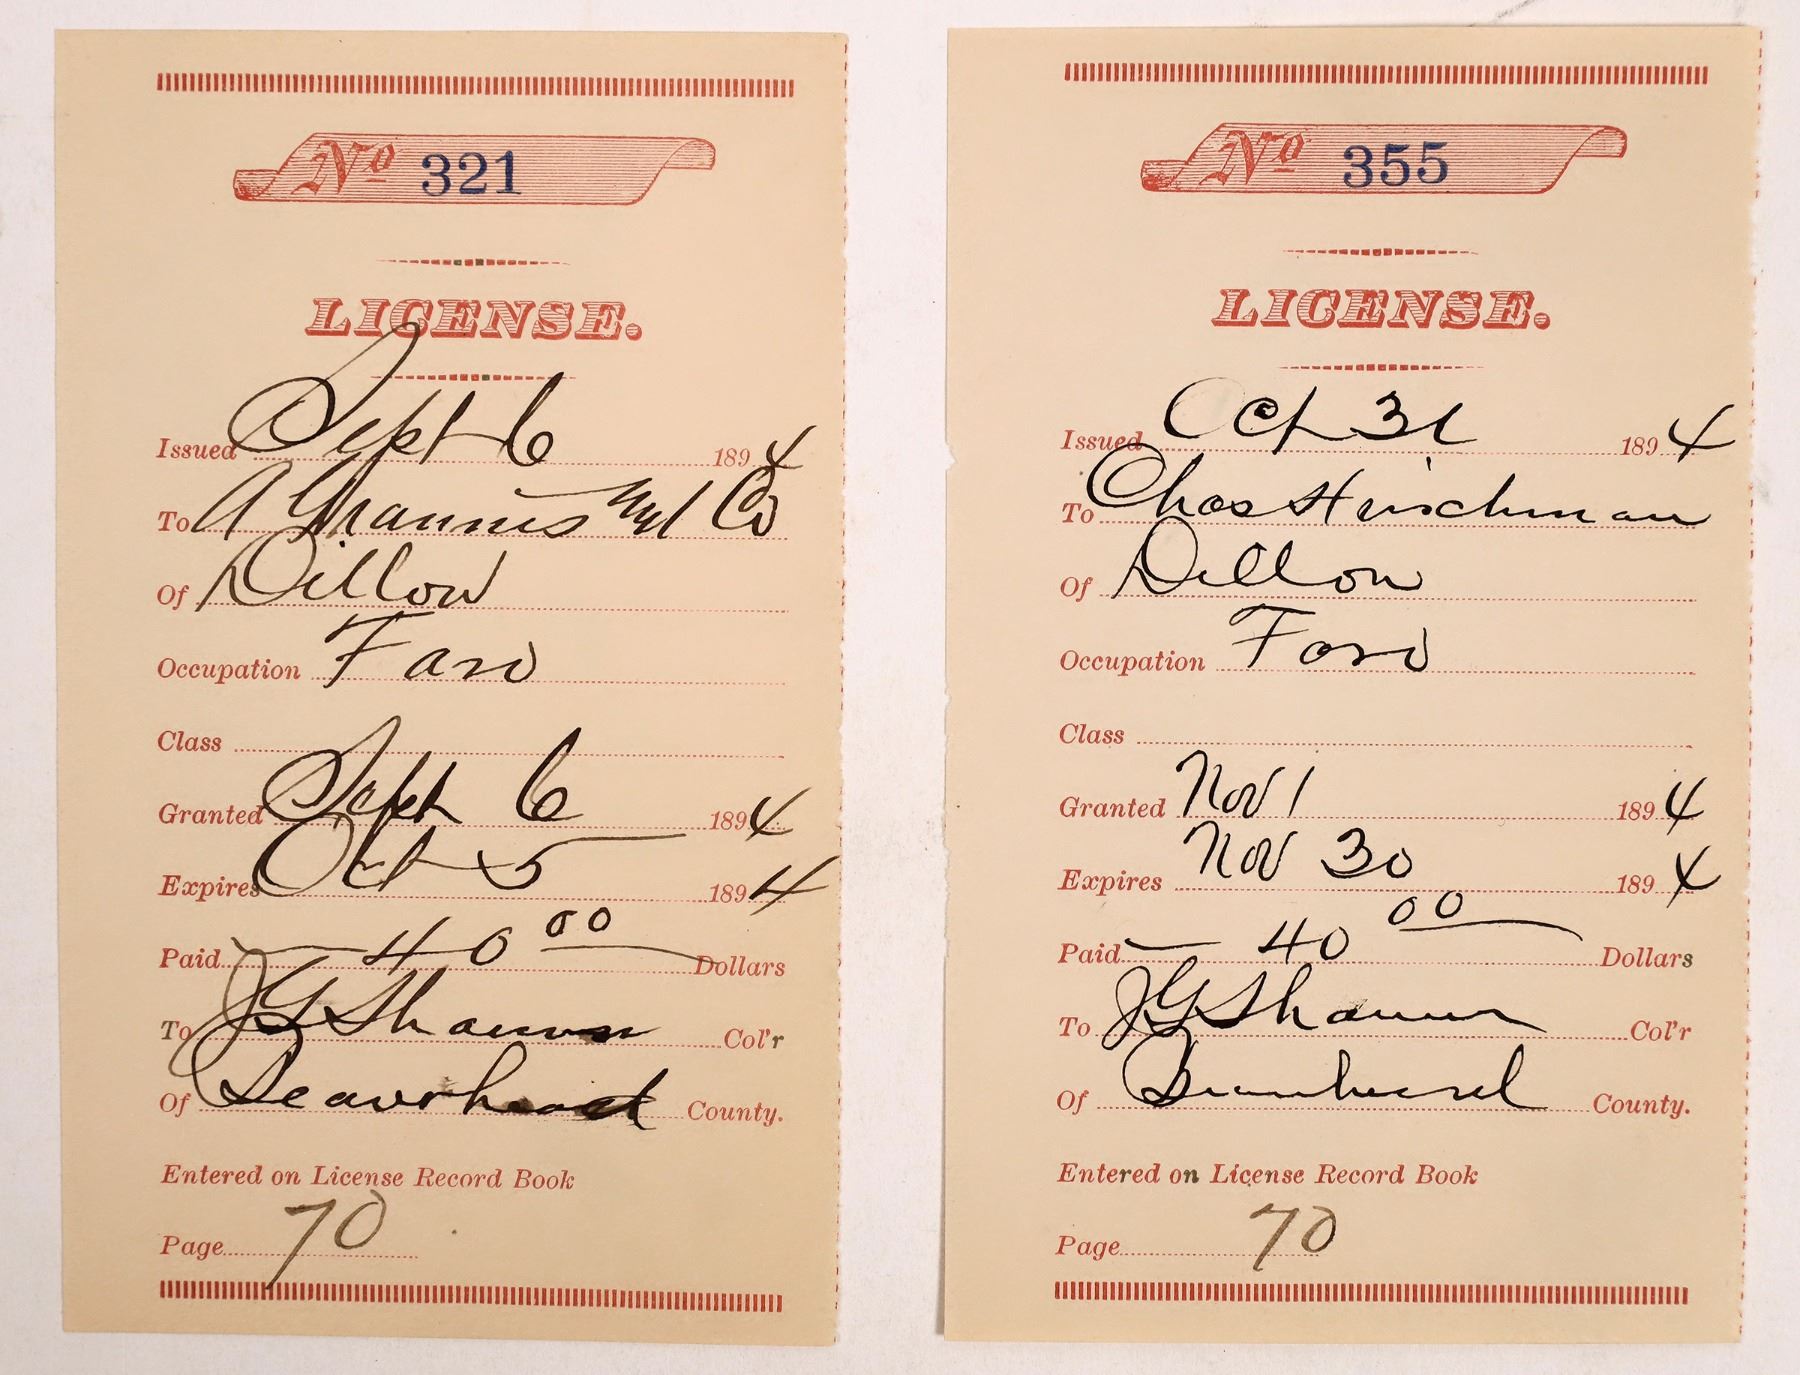 No 321
LICENSE.
Issued Sept 6 1894
To A Grannis Myl Co
Of Dillon
Occupation Faro
Class
Granted Sept 6 1894
Expires Oct 5 1894
Paid 40 00 Dollars
To J G Shannon Col'r
Of Beaverhead County.
Entered on License Record Book
Page 70
No 355
LICENSE.
Issued Oct 31 1894
To Chas Hirschman
Of Dillon
Occupation Faro
Class
Granted Nov 1 1894
Expires Nov 30 1894
Paid 40 00 Dollars
To J G Shannon Col'r
Of Beaverhead County.
Entered on License Record Book
Page 70